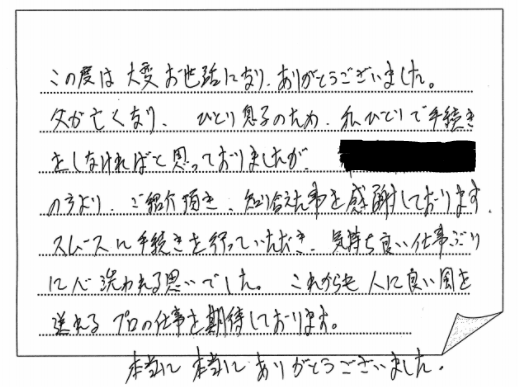 この度は大変お世話になり、ありがとうございました。
父が亡くなり、ひとり息子のため、私ひとりで手続き
をしなければと思っておりましたが、
の方より、ご紹介頂き、知り合えた事を感謝しております。
スムーズに手続きを行っていただき、気持ち良い仕事ぶり
に心洗われる思いでした。これからも人に良い風を
送れるプロの仕事を期待しております。
本当に本当にありがとうございました。